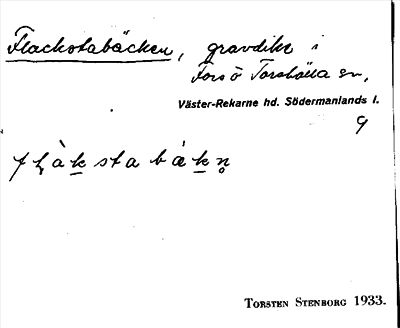 Flackstabäcken, gravdike i
Forsö Torshälla sn,
Väster-Rekarne hd. Södermanlands l.
9
TORSTEN STENBORG 1933.